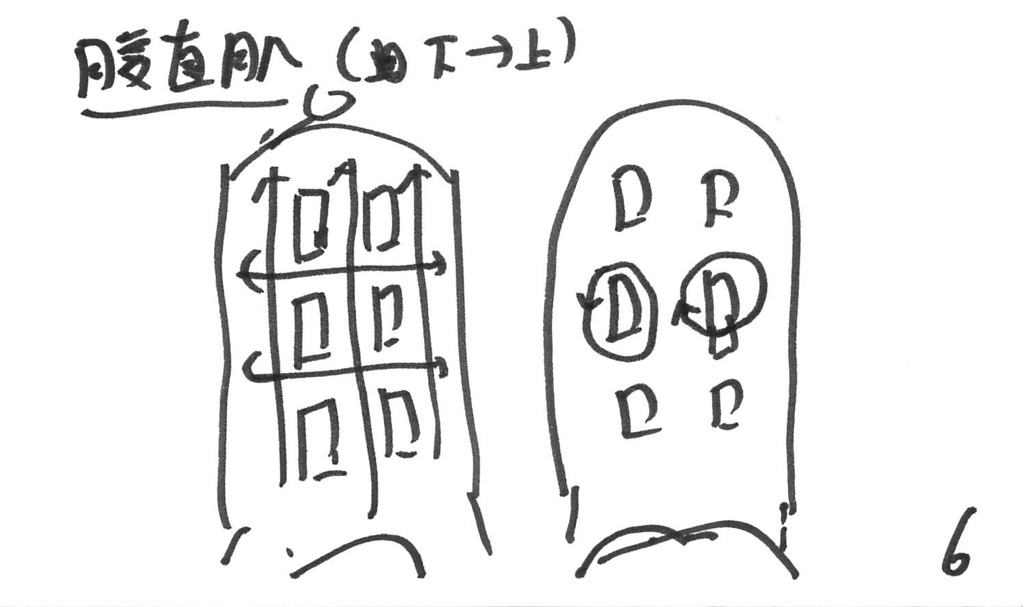 腹直肌 (由下→上)
6